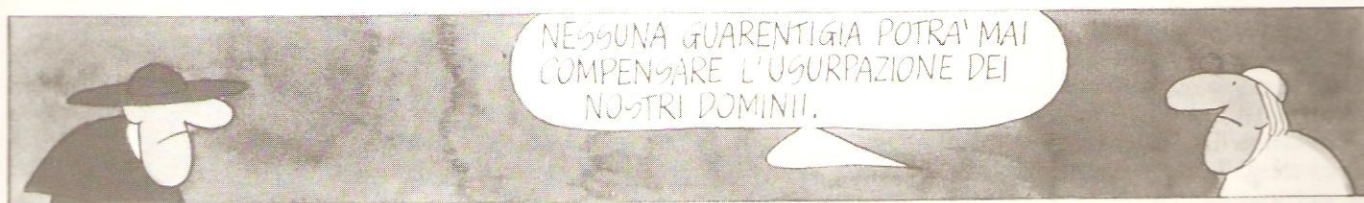 NESSUNA GUARENTIGIA POTRA' MAI
COMPENSARE L'USURPAZIONE DEI
NOSTRI DOMINII.